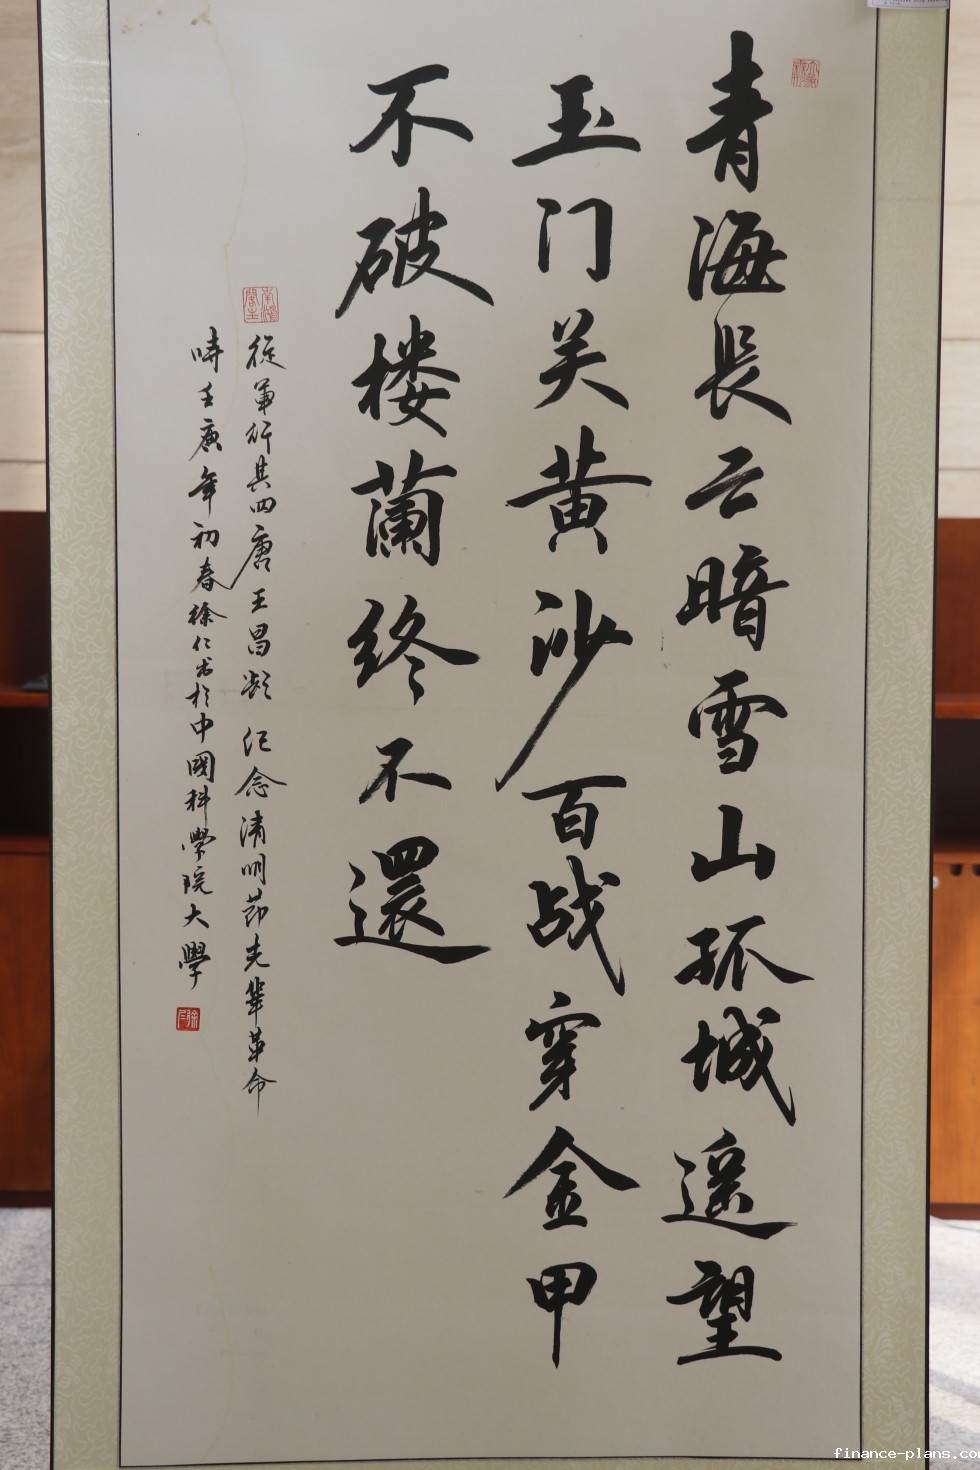 青海長云暗雪山孤城遥望
玉门关黄沙百战穿金甲
不破楼蘭终不還
從軍行其四唐王昌龄 纪念清明节先輩革命
時壬庚年初春徐仁书於中國科學院大學
徐仁
finance-plans.co